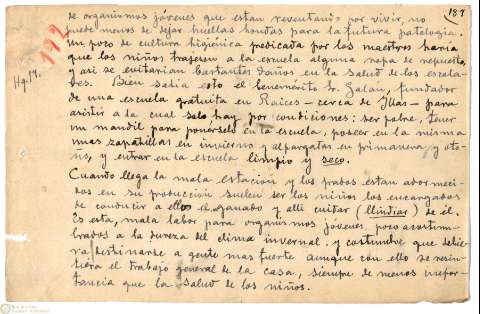 187
192
Hg. 17.
de organismos jóvenes que estan reventando por vivir, no
puede menos de dejar huellas hondas para la futura patologia.
Un poco de cultura higiénica predicada por los maestros haria
que los niños trajesen a la escuela alguna ropa de repuesto
y asi se evitarian bastantes daños en la salud de los escola-
res. Bien sabia esto el benemérito Sr. Galan, fundador
de una escuela gratuita en Raices - cerca de Illas - para
asistir a la cual solo hay por condiciones: ser pobre, tener
un mandil para ponérselo en la escuela, poseer en la misma
unas zapatillas en invierno y alpargatas en primavera y oto-
ño, y entrar en la escuela limpio y seco.
Cuando llega la mala estación y los prados estan adormeci-
dos en su producción suelen ser los niños los encargados
de conducir a ellos el ganado y alli cuidar (llindiar) de él.
Es esta, mala labor para organismos jóvenes poco acostum-
brados a la dureza del clima invernal, y costumbre que debie-
ra destinarse a gente mas fuerte aunque con ello se resin-
tiera el trabajo general de la casa, siempre de menos impor-
tancia que la salud de los niños.